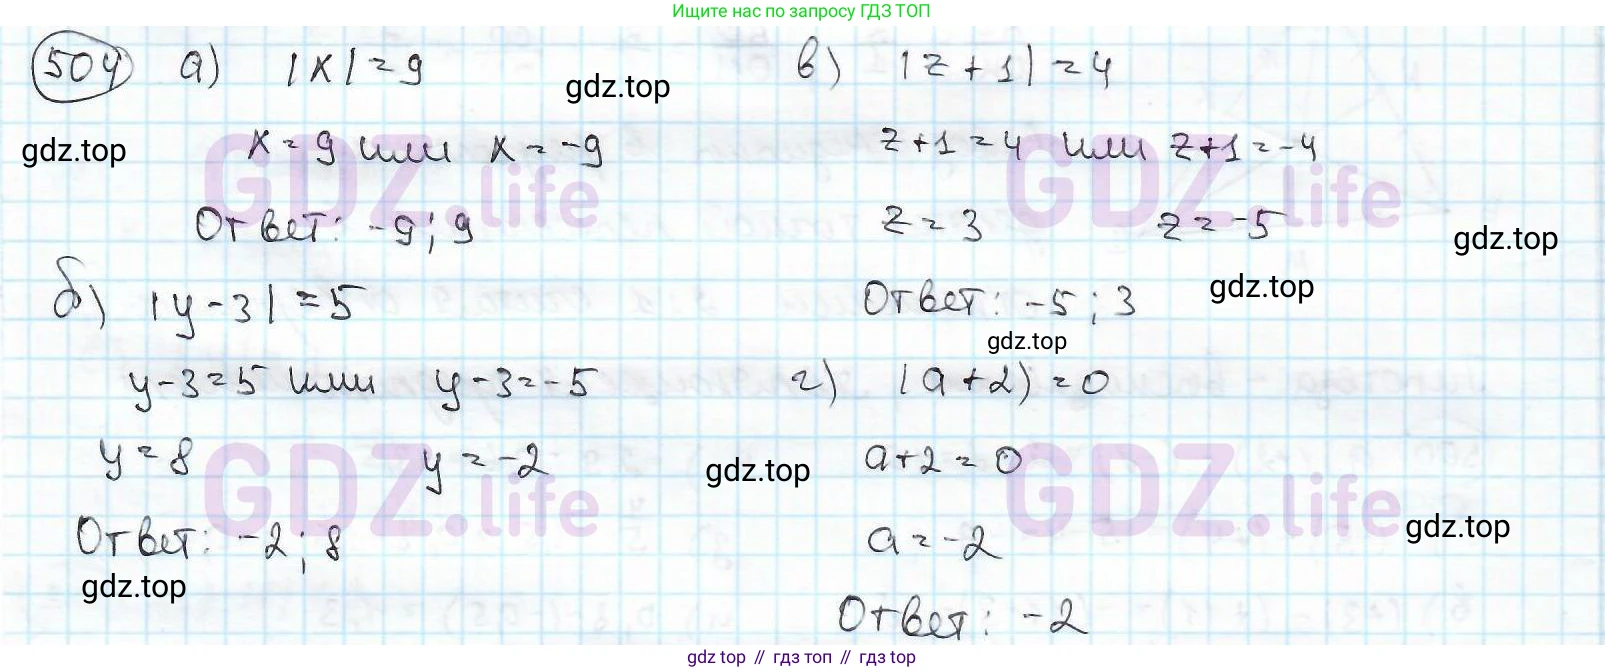 Ищите нас по запросу ГДЗ ТОП
504 а) |x| = 9
gdz.top
gdz.top
x = 9 или x = -9
Ответ: -9; 9
б) |y - 3| = 5
y - 3 = 5 или y - 3 = -5
y = 8 y = -2
Ответ: -2; 8
gdz.top
в) |z + 1| = 4
z + 1 = 4 или z + 1 = -4
z = 3 z = -5
gdz.top
gdz.top
Ответ: -5; 3
gdz.top
г) |a + 2) = 0
a + 2 = 0
gdz.top
a = -2
gdz.top
Ответ: -2
GDZ.life
GDZ.life
GDZ.life
GDZ.life
gdz top // гдз топ // гдз top